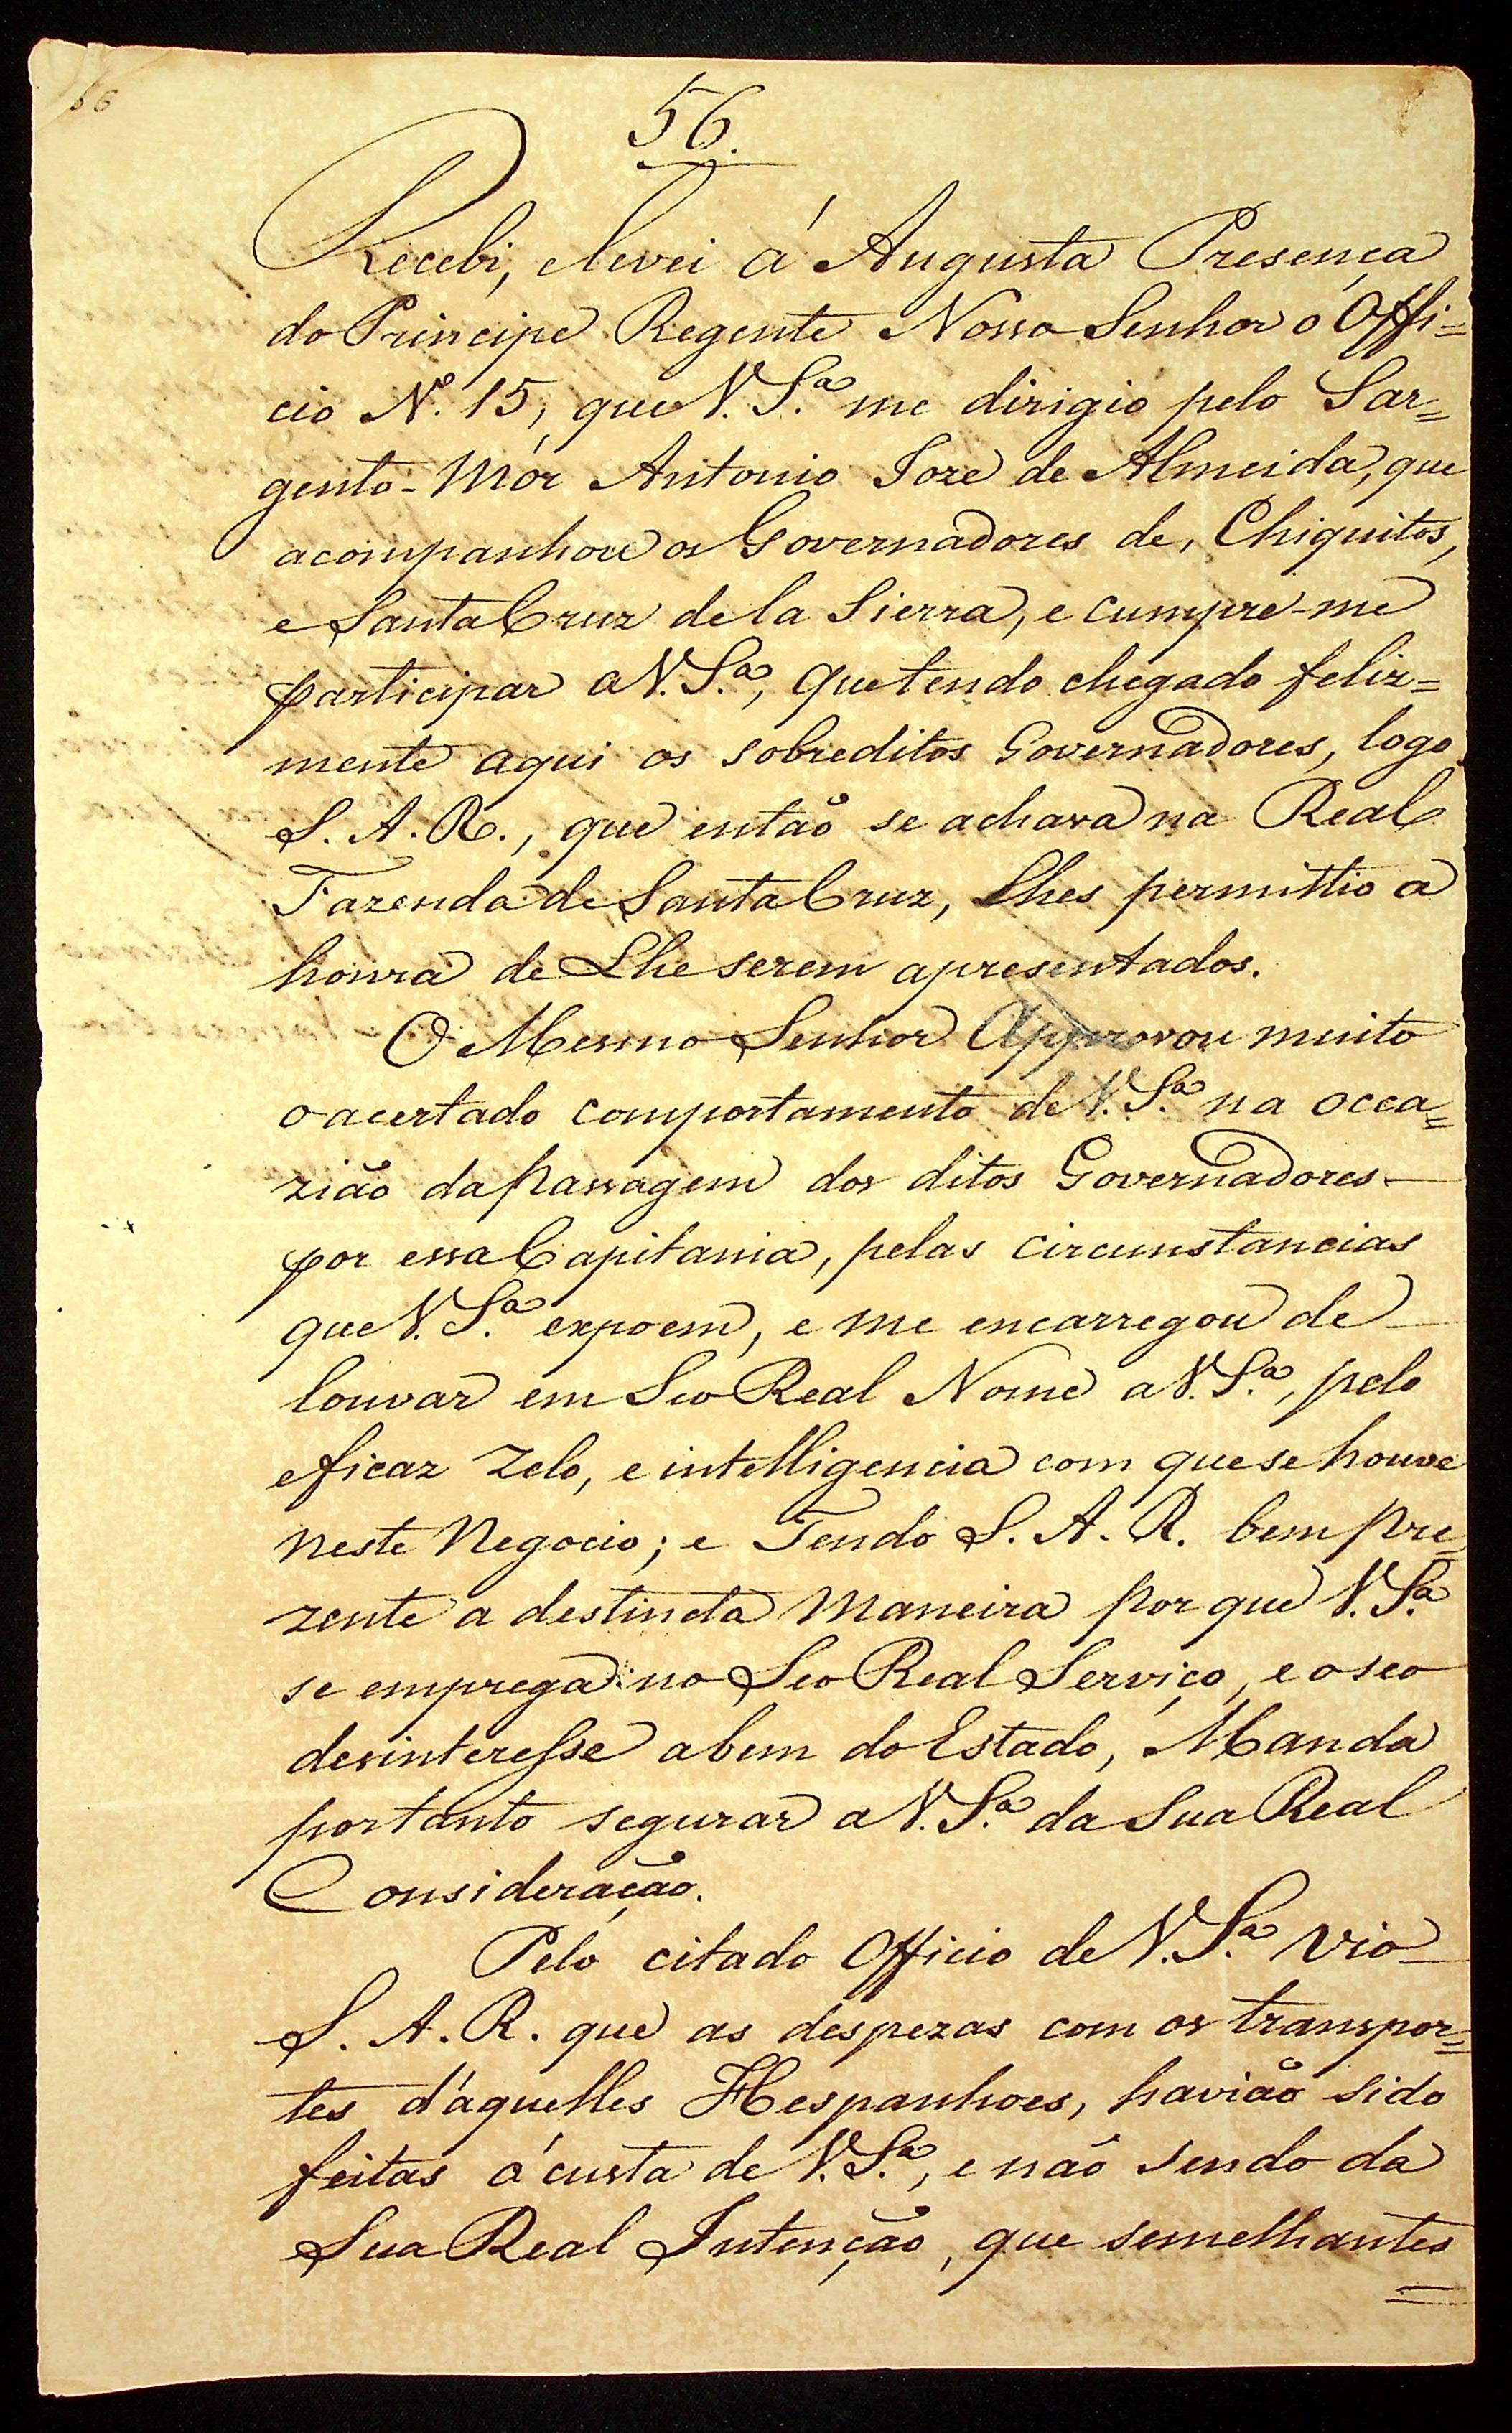 56
56.
Recebi, elevei á Augusta Presença
do Principe Regente Nosso Senhor o Offi=
cio Nº. 15, que V. S.ª me dirigio pelo Sar=
gento-Mór Antonio Joze de Almeida, que
acompanhou os Governadores de, Chiquitos,
e Santa Cruz de la Sierra, e cumpre-me
participar a V. S.ª, que tendo chegado feliz=
mente aqui os sobreditos Governadores, logo
S. A. R., que então se achava na Real
Fazenda de Santa Cruz, lhes permittio a
honra de Lhe serem apresentados.
O Mesmo Senhor Approvou muito
o acertado comportamento de V. S.ª na occa=
zião da passagem dos ditos Governadores
por essa Capitania, pelas circunstancias
que V. S.ª expoem, e me encarregou de
louvar em Seo Real Nome a V. S.ª, pelo
eficaz zelo, e intelligencia com que se houve
neste Negocio; e Tendo S. A. R. bem pre=
zente a destincta maneira por que V. S.ª
se emprega no Seo Real Serviço, e o seo
desinteresse a bem do Estado, Manda
portanto segurar a V. S.ª da Sua Real
Consideração.
Pelo citado Officio de V. S.ª Vio
S. A. R. que as despezas com os transpor=
tes d'aquelles Hespanhoes, havião sido
feitas á custa de V. S.ª, e não sendo da
Sua Real Intenção, que semelhantes
=